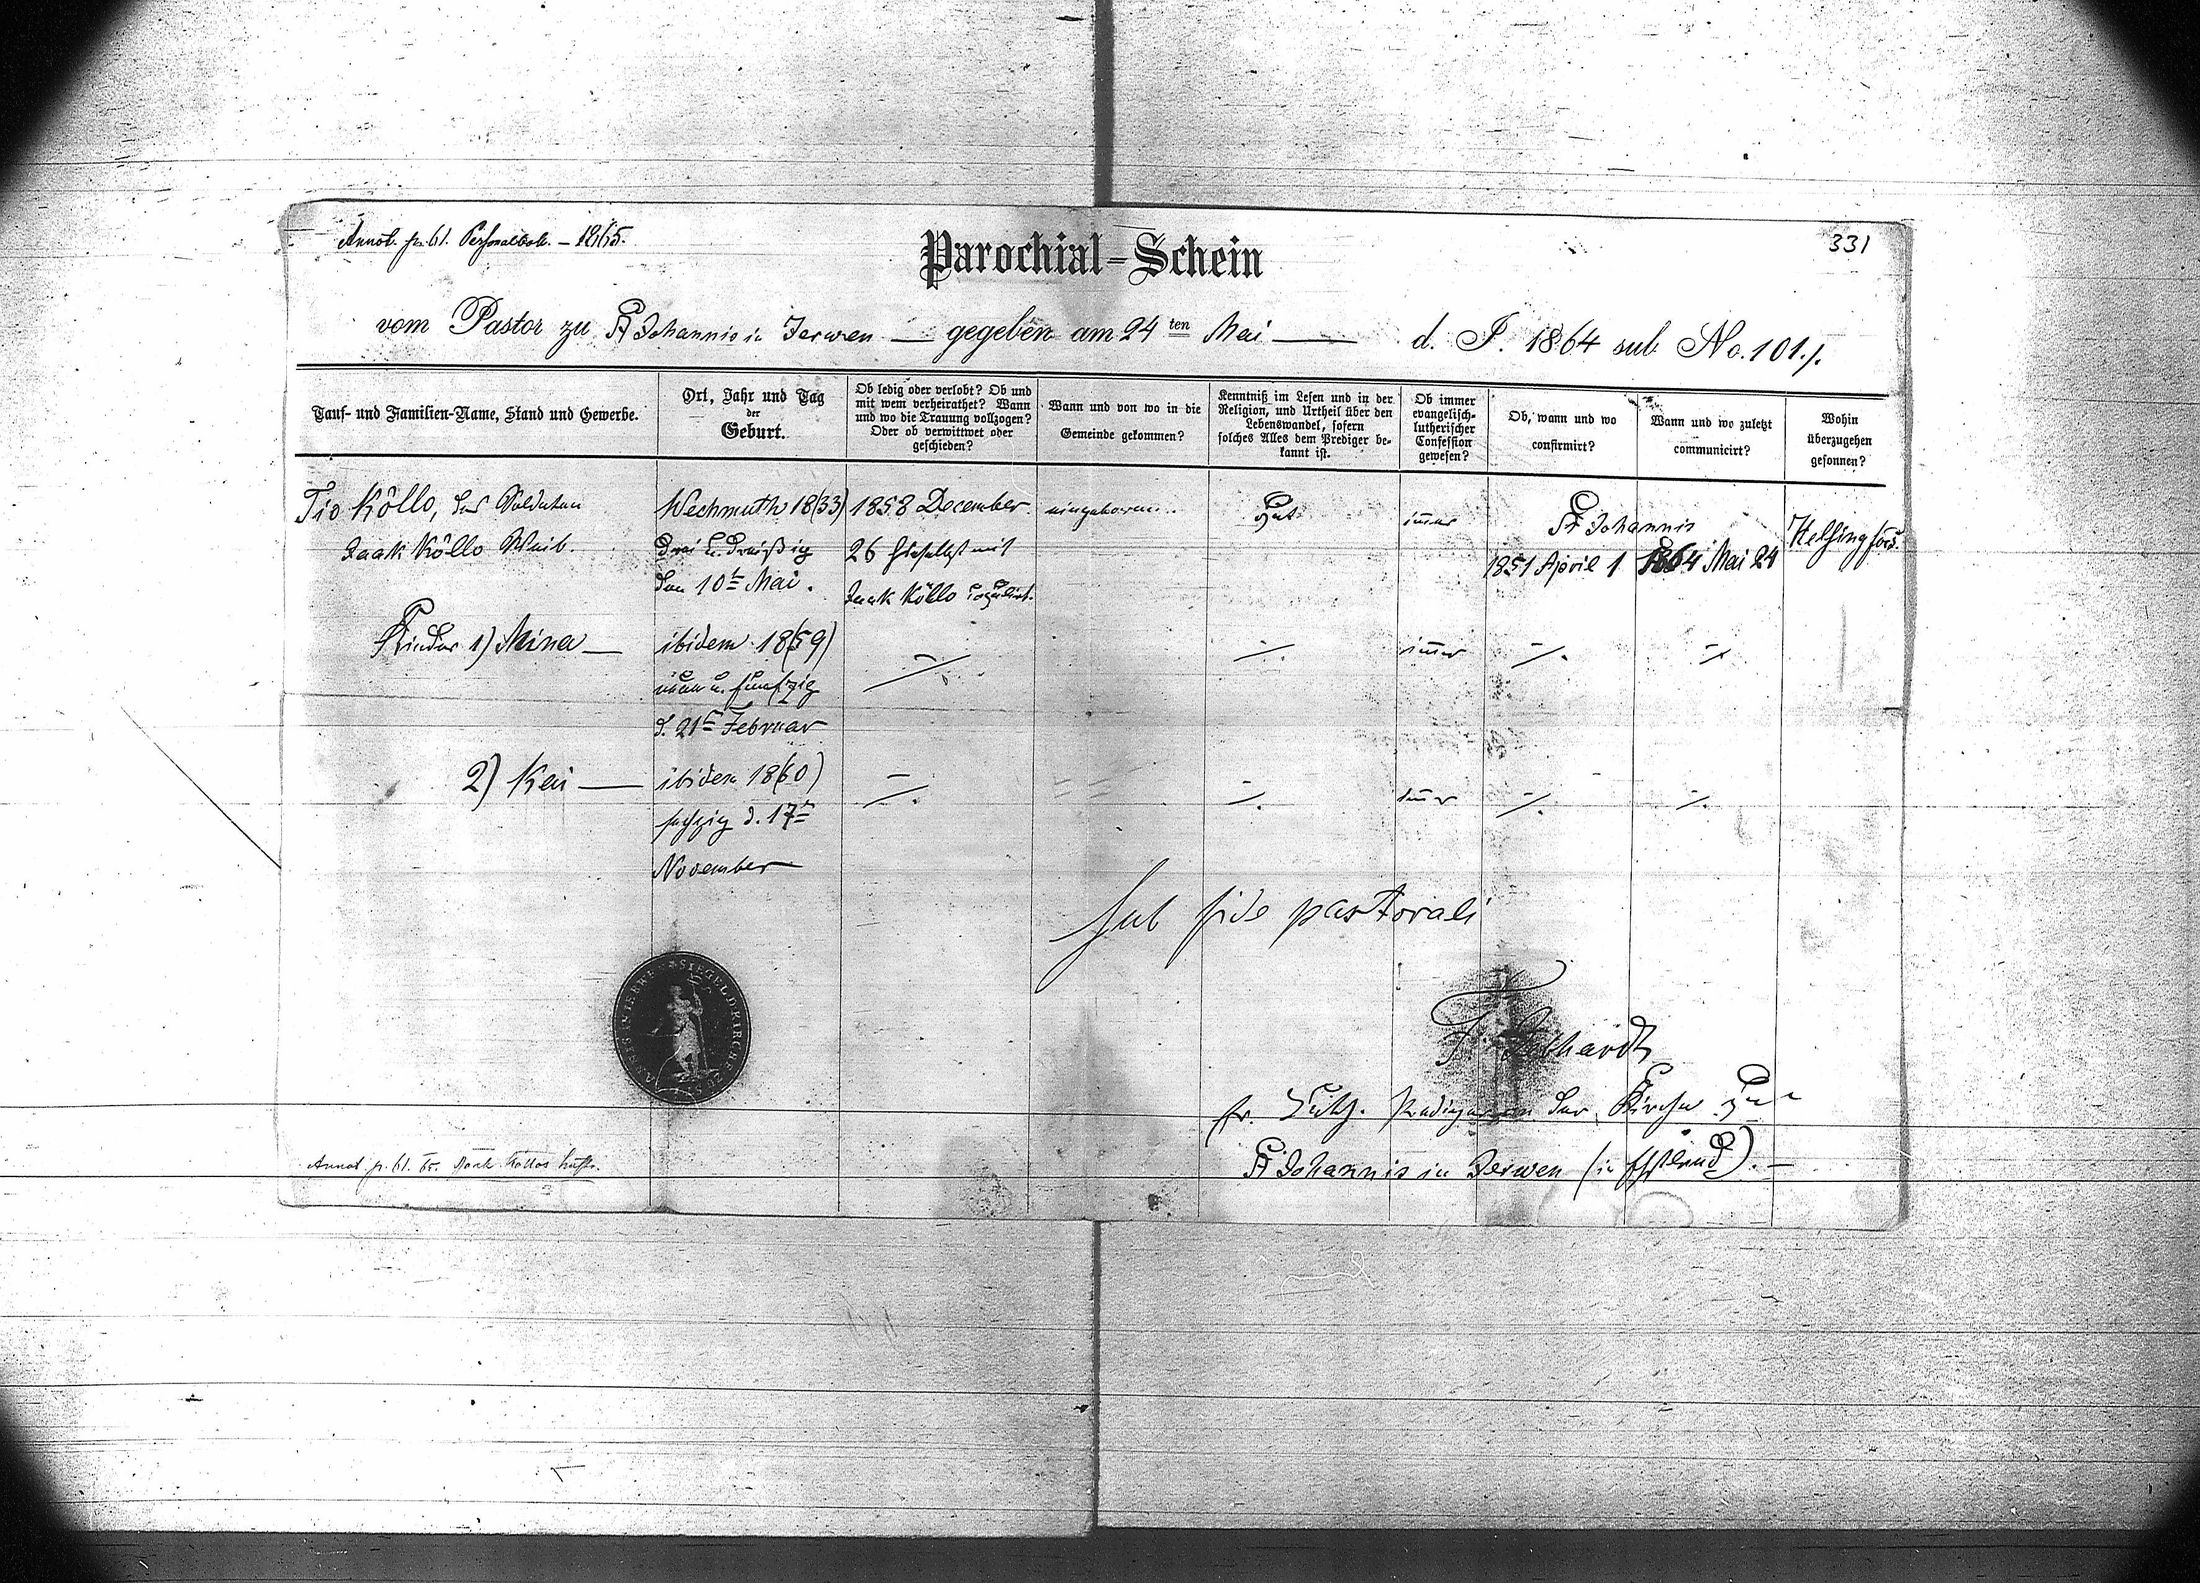 Annot. fr. 61. Personalbok. – 1865.
331
Parochial-Schein
vom Pastor zu St Johannis in Jerwen — gegeben am 24 ten Mai — d. J. 1864 sub No. 101./.
Tauf- und Familien-Name, Stand und Gewerbe.
Ort, Jahr und Tag
der
Geburt.
Ob ledig oder verlobt? Ob und
mit wem verheirathet? Wann
und wo die Trauung vollzogen?
Oder ob verwittwet oder
geschieden?
Wann und von wo in die
Gemeinde gekommen?
Kenntniß im Lesen und in der
Religion, und Urtheil über den
Lebenswandel, sofern
solches Alles dem Prediger be-
kannt ist.
Ob immer
evangelisch-
lutherischer
Confession
gewesen?
Ob, wann und wo
confirmirt?
Wann und wo zuletzt
communicirt?
Wohin
überzugehen
gesonnen?
Tio Kõllo, des Soldaten
Jaak Kõllo Weib.
Wechmuth 18(33)
drei u. dreißig
den 10t Mai.
1858 December
26 hieselbst mit
Jaak Kõllo copulirt.
eingeboren.
gut
immer
St Johannis
1851 April 1
1864 Mai 24
Helsingfors.
Kinder 1) Mina —
ibidem 18(59)
neun u. fünfzig
d. 21t Februar
immer
2) Kai —
ibidem 18(60)
sechzig d. 17t
November
immer
sub fide pastorali
SIEGEL D. KIRCHE
Prediger an der Kirche zu
St Johannis in Jerwen (in Ehstland). —